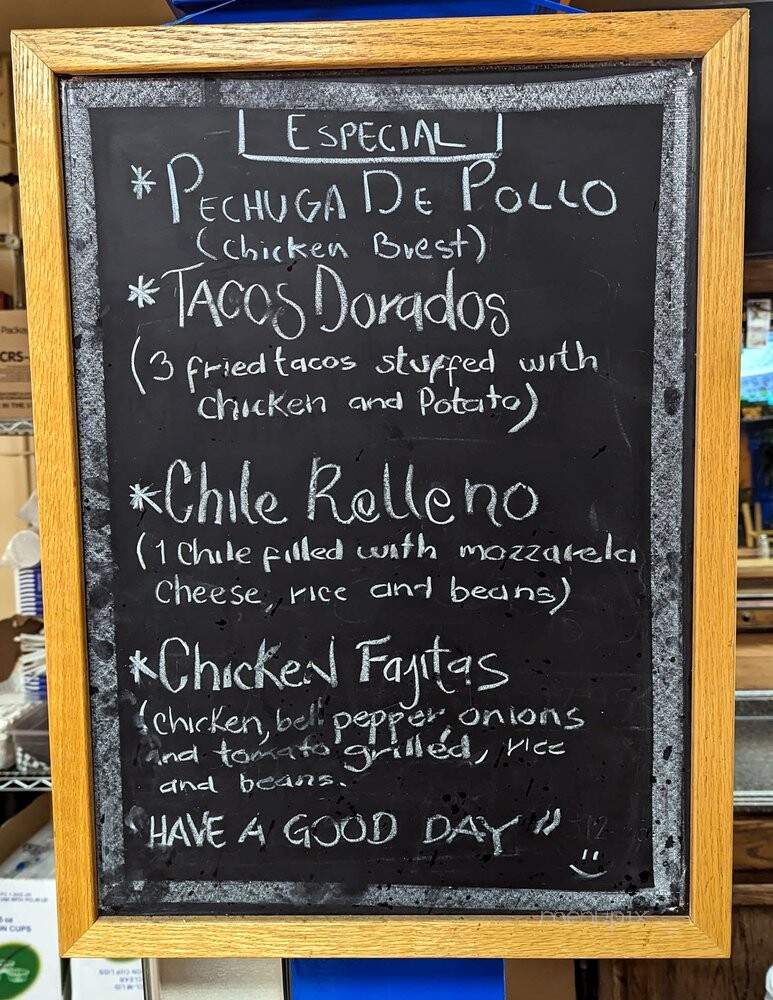 ESPECIAL
* PECHUGA DE POLLO
(Chicken Brest)
* TACOS Dorados
(3 fried tacos stuffed with
chicken and Potato)
* Chile Relleno
(1 Chile filled with mozzarela
Cheese, rice and beans)
* Chicken Fajitas
(chicken, bell pepper, onions
and tomato grilled, rice
and beans.
"HAVE A GOOD DAY"
menupix
CUPS